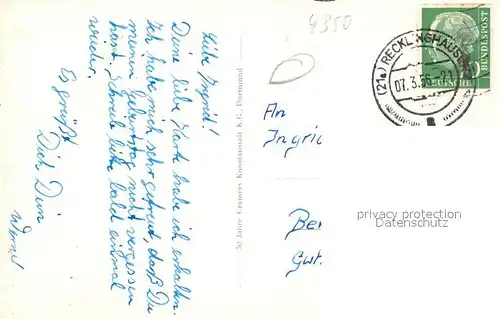 Liebe Ingrid!
Deine liebe Karte habe ich erhalten.
Ich habe mich sehr gefreut, daß Du
meinen Geburtstag nicht vergessen
hast. Schreibe bitte bald einmal
wieder.
Es grüßt
Dich Dein
Werner
50 Jahre Cramers Kunstanstalt K.G., Dortmund
4350
An
Ingrid
Be
Gut
(21a) RECKLINGHAUS
07.3.56
DEUTSCHE
BUNDESPOST
privacy protection
Datenschutz